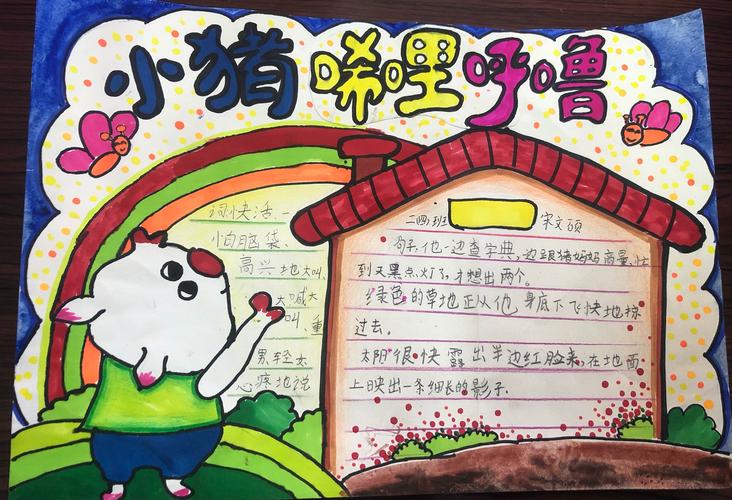 小猪唏哩呼噜
词快活、一
怕脑袋、
高兴地大叫、
大喊大
叫、重
累轻太
心疼地说
二四班 宋文硕
句子、他一边查字典，边跟猪妈妈商量，忙
到天黑点灯了，才想出两个。
绿色的草地正从他身底下飞快地掠
过去。
太阳很快露出半边红脸来，在地面
上映出一条细长的影子。